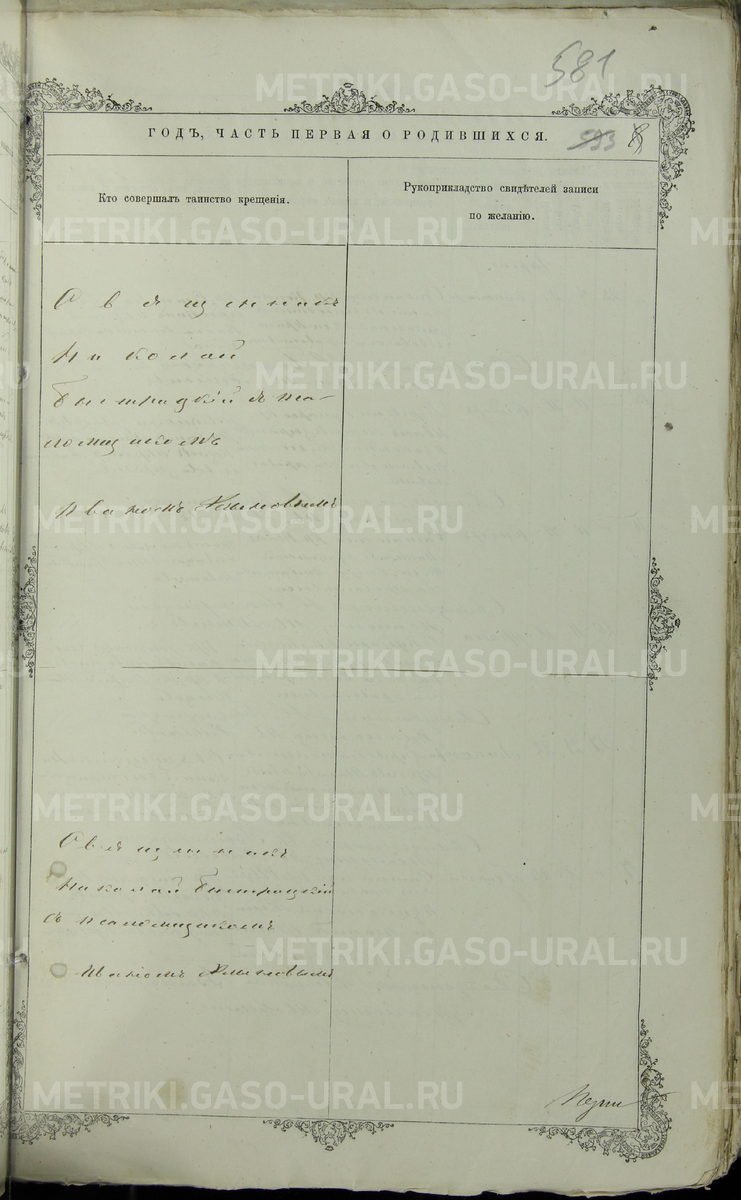 581
METRIKI.GASO-URAL.RU
ГОДЪ, ЧАСТЬ ПЕРВАЯ О РОДИВШИХСЯ. 593
Кто совершалъ таинство крещенія.
Рукоприкладство свидѣтелей записи
по желанію.
METRIKI.GASO-URAL.RU
Священникъ
Николай
METRIKI.GASO-URAL.RU
Быстрицкій съ пса-
ломщикомъ
Иваномъ
METRIKI.GASO-URAL.RU
METRIKI.GASO-URAL.RU
METRIKI.GASO-URAL.RU
Священникъ
Николай Быстрицкій
съ псаломщикомъ
METRIKI.GASO-URAL.RU
Иваномъ
METRIKI.GASO-URAL.RU